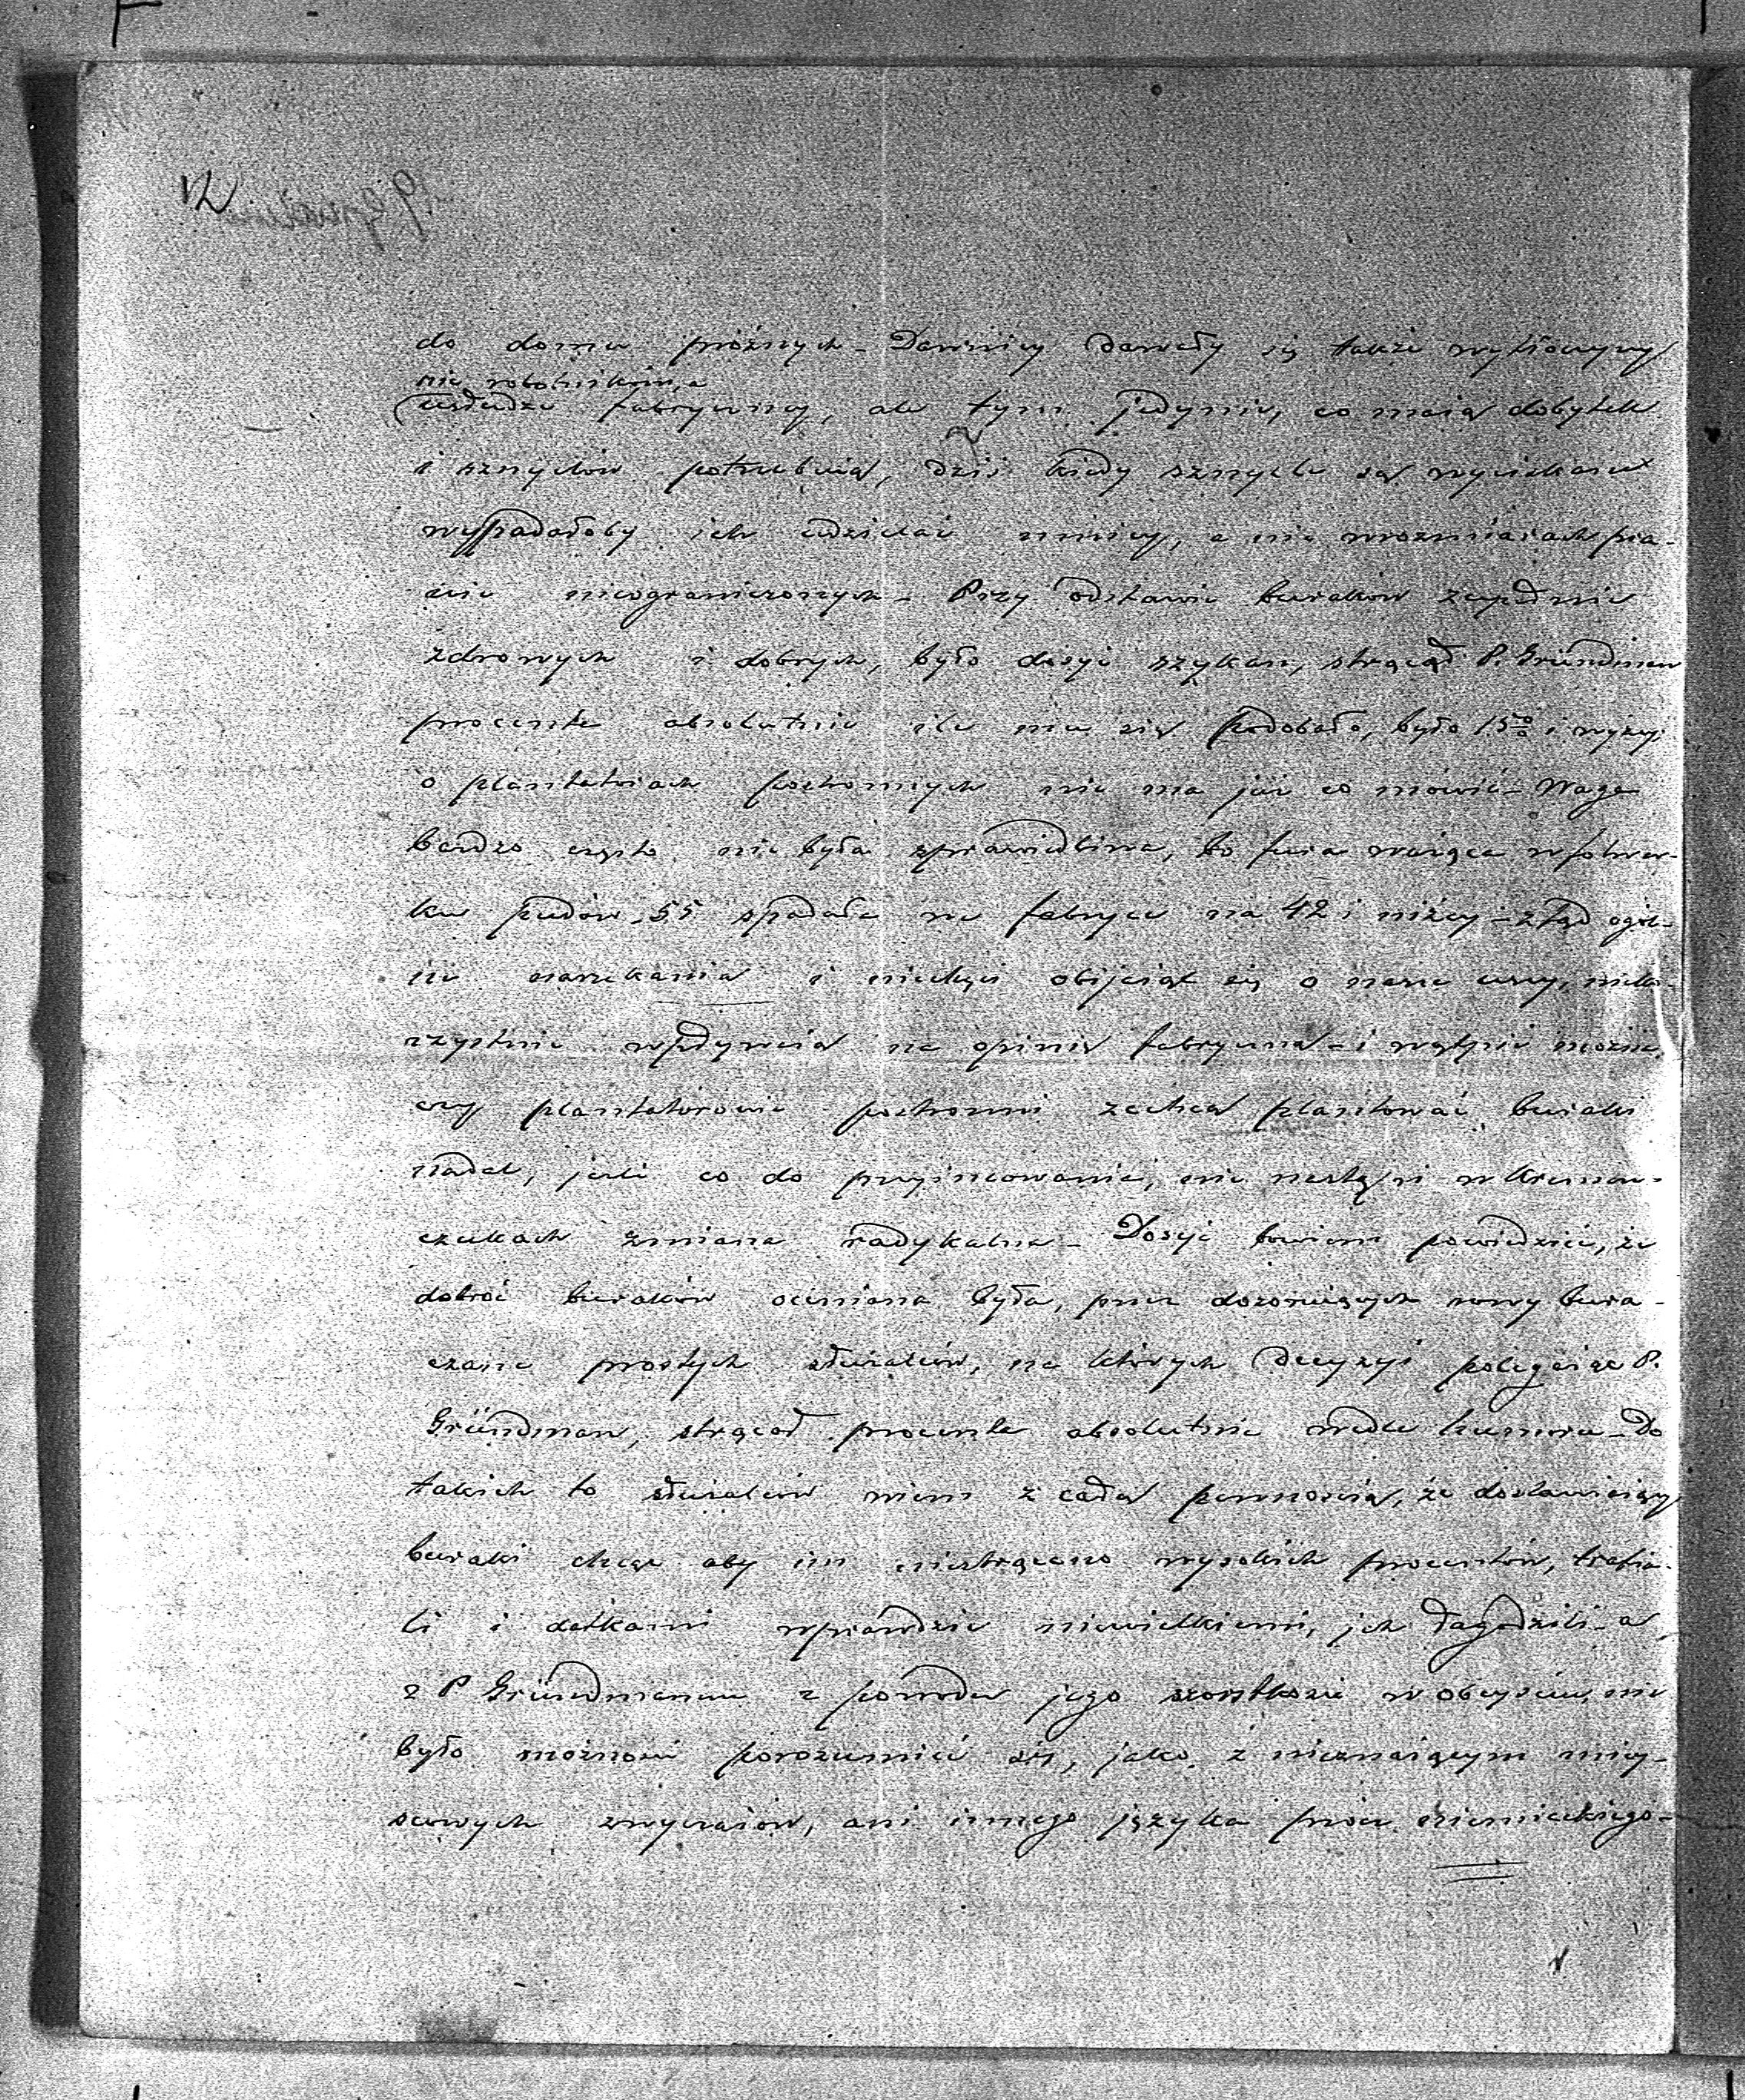 do domu próżnych – Dawniej dawały się także wytłoczyny
nie robotnikom, a
usłudze fabrycznej, ale tym jedynie, co mają dobytek
i sznyclów potrzebują, dziś kiedy sznycle są wyciskane
wypadałoby ich udzielać mniej, a nie w rozmiarach pra-
wie nieograniczonych – Przy odstawie buraków zupełnie
zdrowych i dobrych, było dosyć szykan, strącał P. Gründman
procenta absolutnie ile mu się podobało, było 15% i wyżej
o plantatorach postronnych nie ma już co mówić – Waga
bardzo często nie była sprawiedliwa, bo fura ważąca w folwar-
ku pudów 55 spadała na fabryce na 42 i niżej – ztąd ogól-
ne narzekania i niechęci obijając się o nasze uszy, nieko-
rzystnie wpływają na opinię fabryczną – i wątpić można,
czy plantatorowie postronni zechcą plantować buraki
nadal, jeśli co do przyjmowania, nie nastąpi w
czukach zmiana radykalna – Dosyć bowiem powiedzieć, że
dobroć buraków oceniana była, przez dozorujących rowy bura-
czane prostych stróżaków, na których decyzyi polegając P.
Gründman, strącał procenta absolutnie wedle humoru – Do
takich to stróżaków wiem z całą pewnością, że dostawiający
buraki chcąc aby im niestrącano wysokich procentów, trafia-
li i datkami wprawdzie niewielkiemi, ich łagodzili – a
z P Gründmanem z powodu jego szorstkości w obejściu, nie
było możności porozumieć się, jako z nieznającym miej-
scowych zwyczajów, ani innego języka prócz niemieckiego –